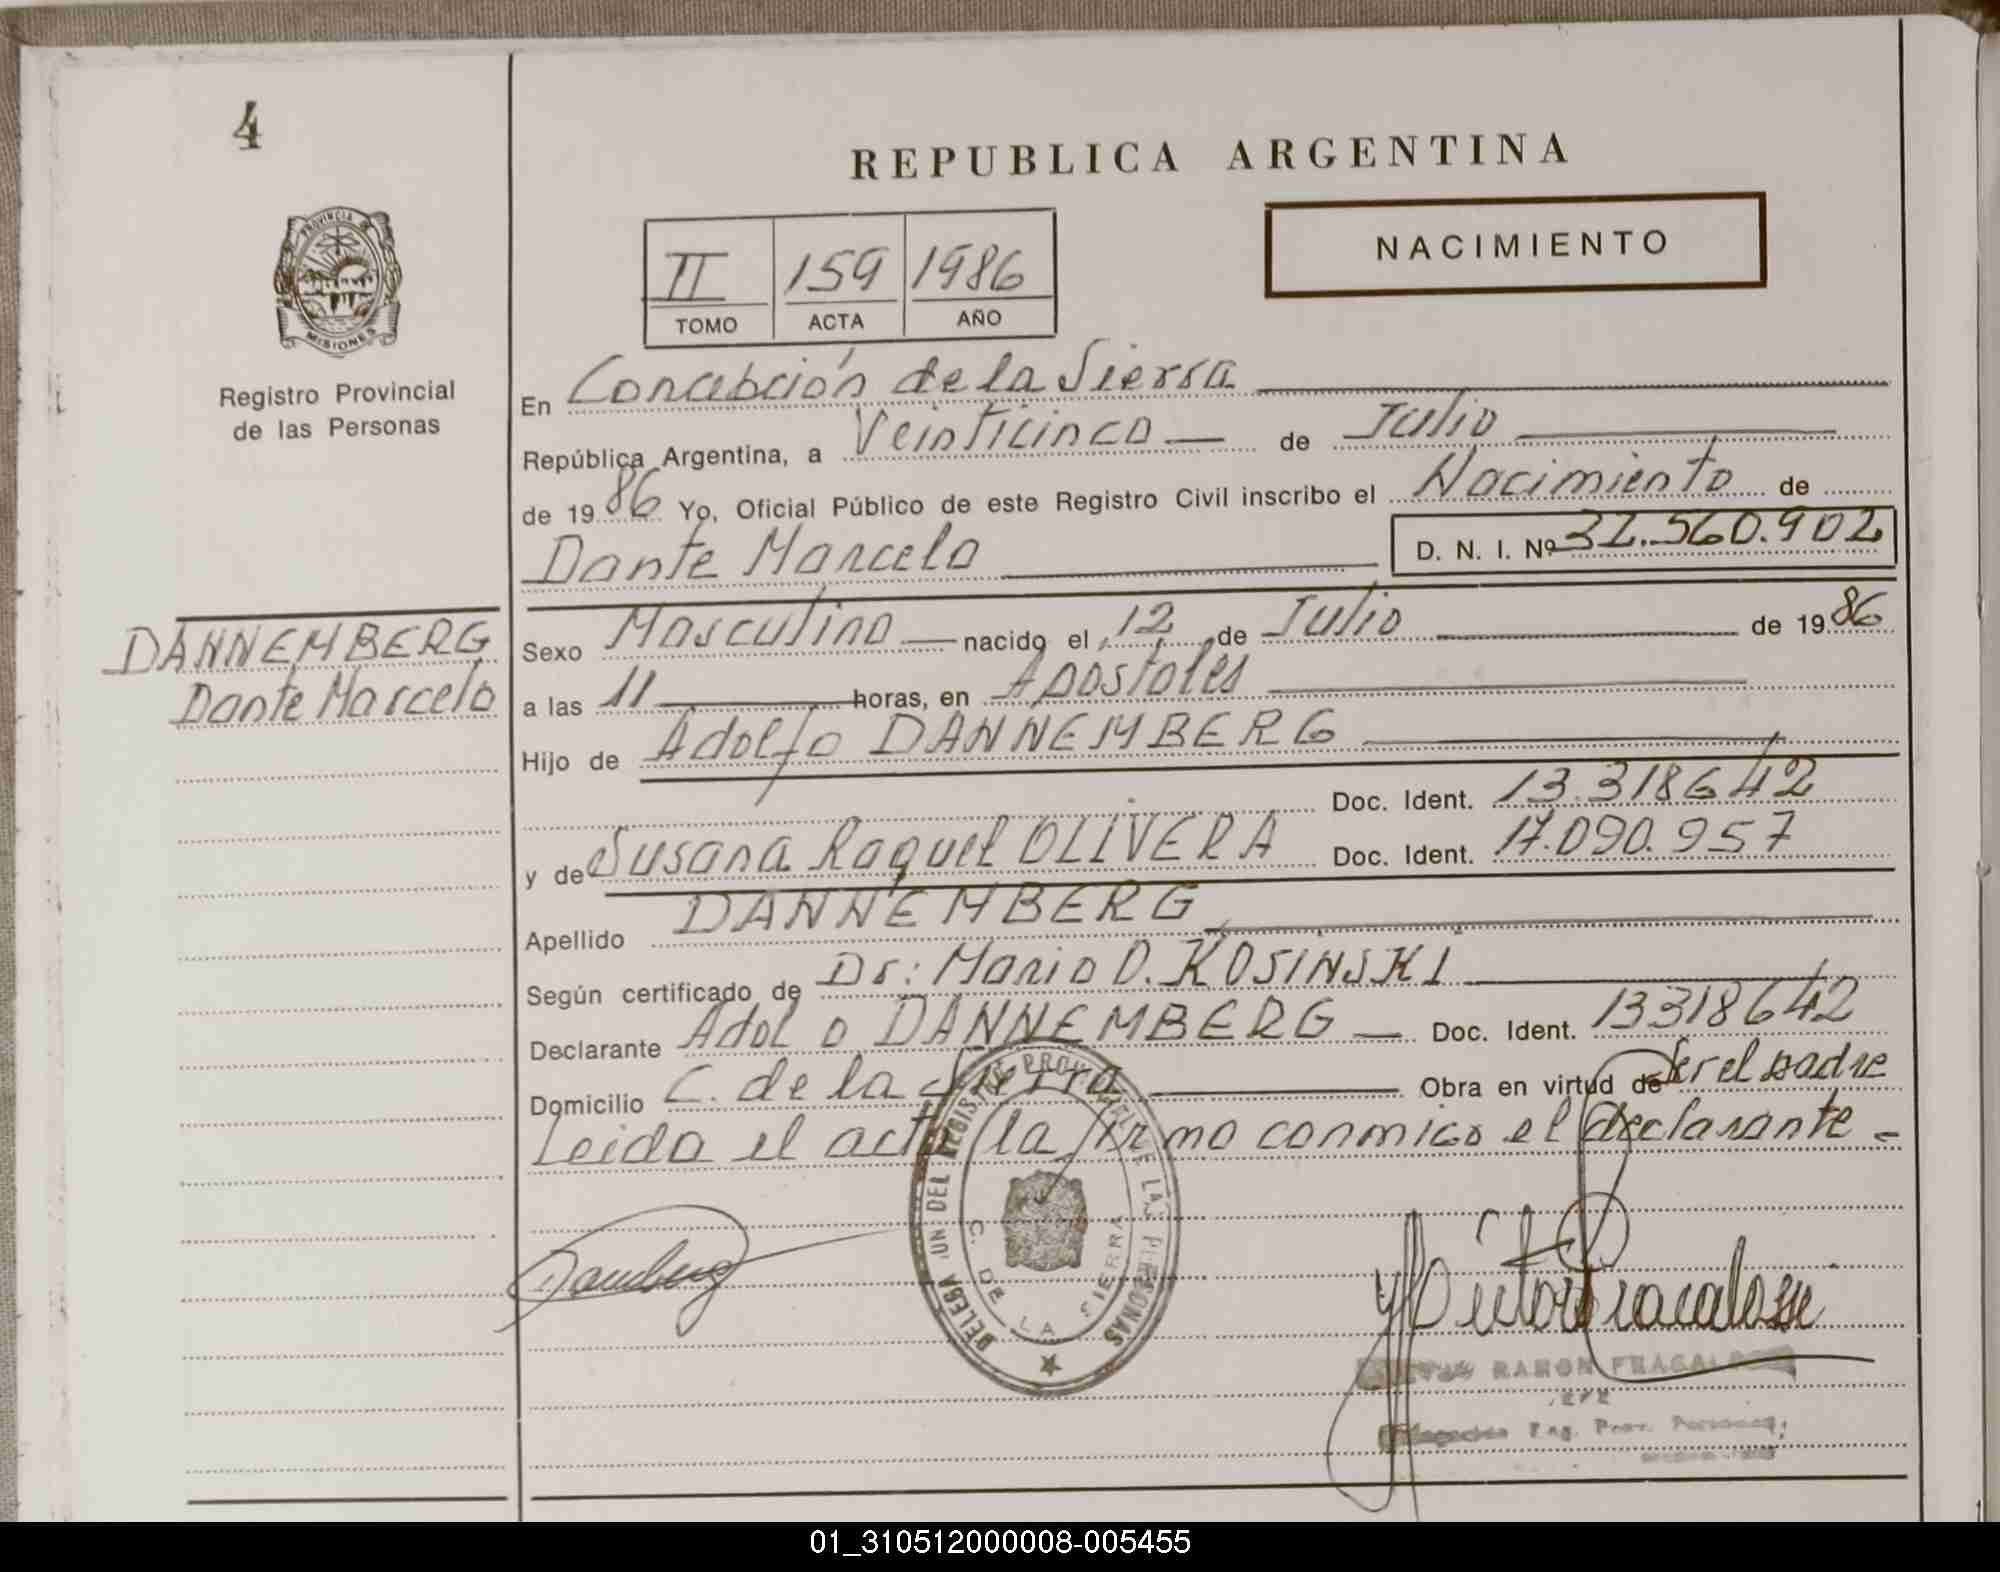 4
PROVINCIA DE
MISIONES
Registro Provincial
de las Personas
DANNEMBERG
Dante Marcelo
REPUBLICA ARGENTINA
NACIMIENTO
II 159 1986
TOMO ACTA AÑO
En Concebción de la Sierra
República Argentina, a Veinticinco de Julio
de 1986 Yo, Oficial Público de este Registro Civil inscribo el Nacimiento de
Dante Marcelo D. N. I. Nº 32.560.902
Sexo Masculino nacido el 12 de Julio de 1986
a las 11 horas, en Apostoles
Hijo de Adolfo DANNEMBERG
Doc. Ident. 13.318642
y de Susana Raquel OLIVERA Doc. Ident. 17.090.957
Apellido DANNEMBERG
Según certificado de Dr: Mario O. KOSINSKI
Declarante Adol o DANNEMBERG Doc. Ident. 13318642
Domicilio C. de la Sierra Obra en virtud de Ser el padre
Leida el acta la firma conmigo el declarante
DELEGA UN DEL REGISTRO PROVINCIAL DE LAS PERSONAS
C. DE LA SIERRA
RAMON
01_310512000008-005455